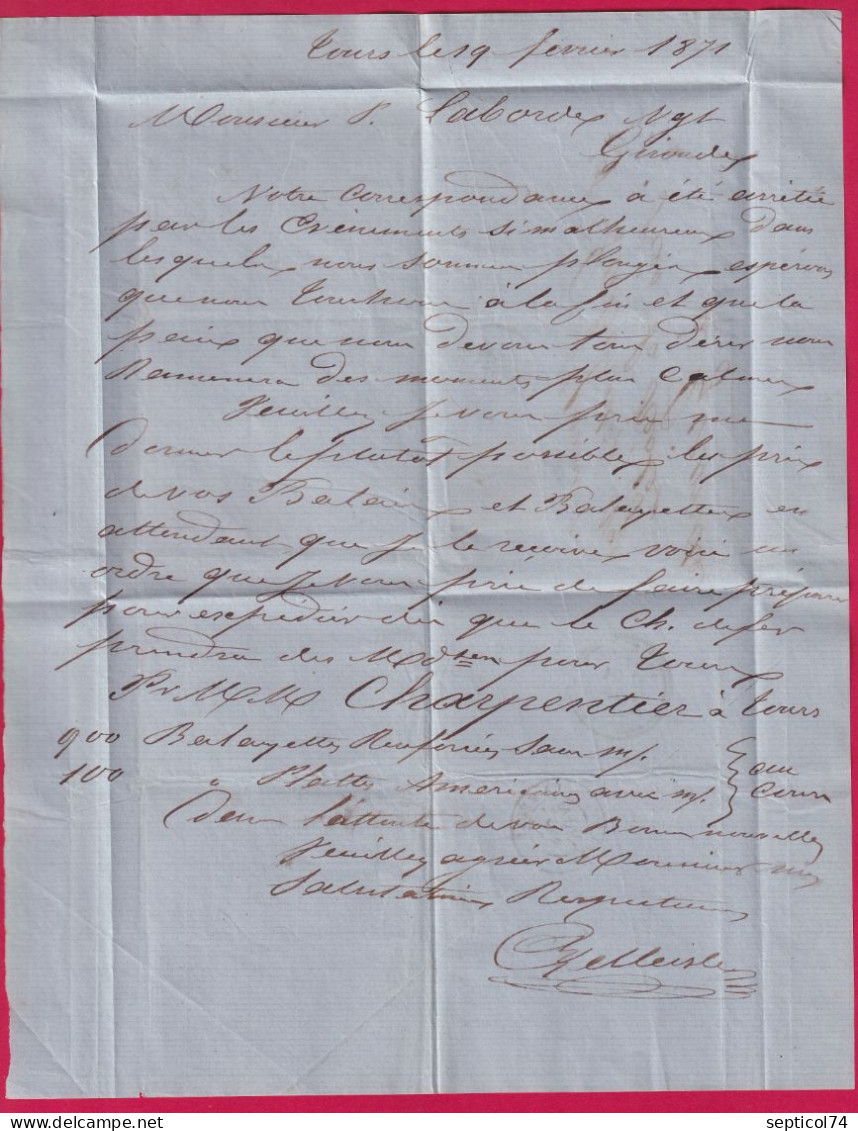 Tours le 19 février 1871
Monsieur P. Laborde Ngt
Gironde
Notre Correspondance à été arrêtée
par les Evénements si malheureux dans
lesquels nous sommes plongés, espérons
que nous touchons à la fin et que la
paix que nous devons tous désirer nous
Ramenera des moments plus Calmes
Veuillez je vous prie me
donner le plutot possible les prix
de vos Balais et Balayettes en
attendant que je le reçoive voici un
ordre que je vous prie de faire préparer
pour expédier dès que le Ch. de fer
prendra des Mdses pour Tours
Pr M M Charpentier à Tours
900 Balayettes Renforcées Sans m/. } au
100 " Plattes Américaines avec m/. } Cours
Dans l'attente de vos Bonnes nouvelles
Veuillez agréer Monsieur mes
Salutations Respectueuses
septicol74